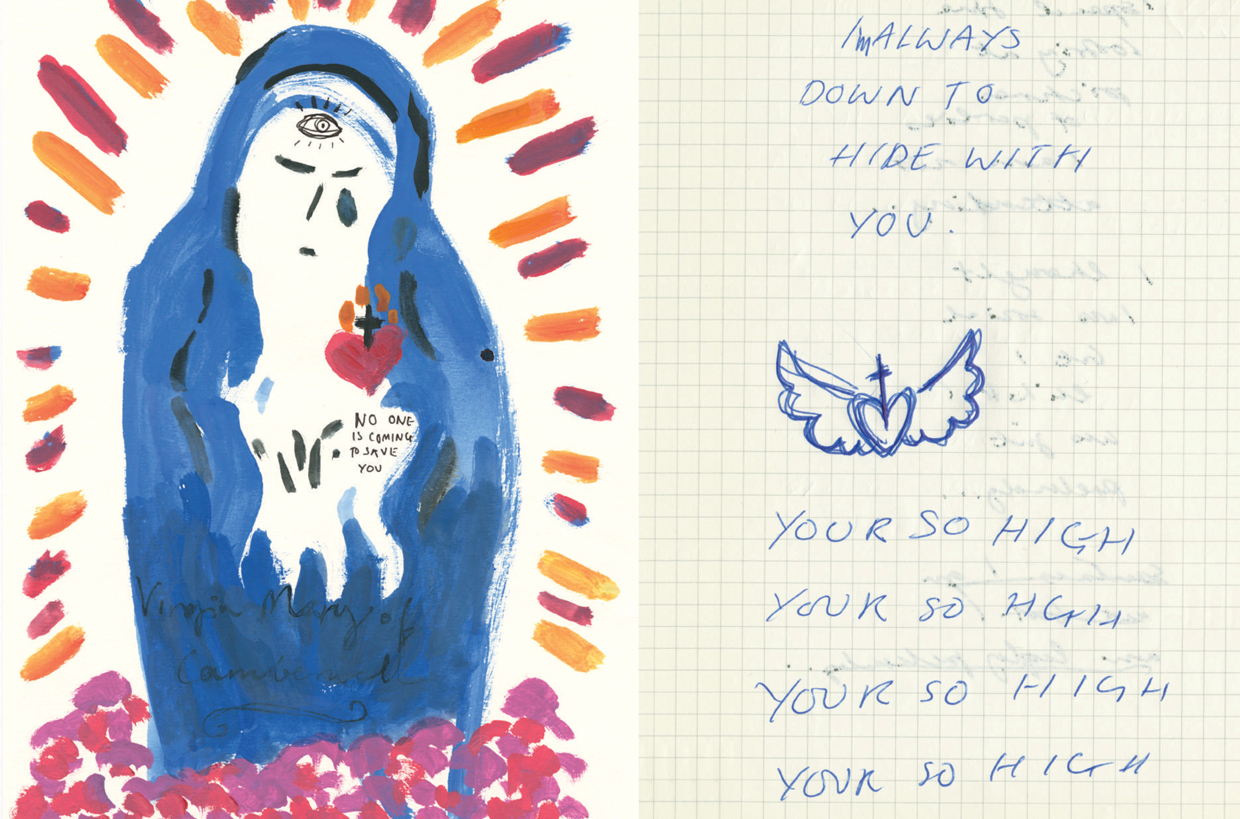 NO ONE
IS COMING
TO SAVE
YOU
Virgin Mary of
Camberwell
I'm ALWAYS
DOWN TO
HIDE WITH
YOU.
YOUR SO HIGH
YOUR SO HGH
YOUR SO HIGH
YOUR SO HIGH